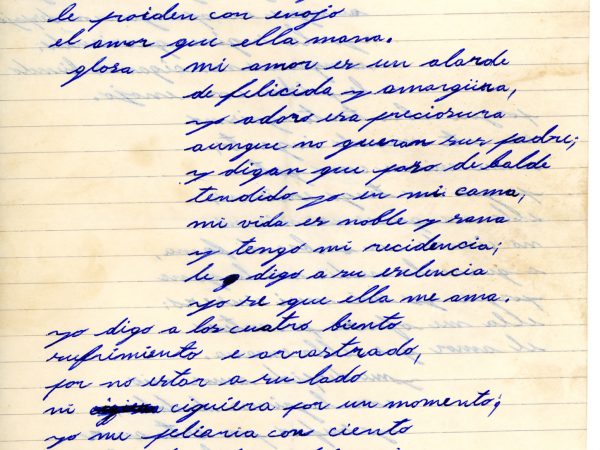 le proiden con enojo
el amor que ella mana.
glosa mi amor es un alarde
de felicida y amargüra,
yo adoro esa preciosura
aunque no queran sus padre;
y digan que paso de balde
tendido yo en mi cama,
mi vida es noble y sana
y tengo mi recidencia;
le digo a su exelencia
yo se que ella me ama.
yo digo a los cuatro biento
sufrimiento e arrastrado,
por no estar a su lado
ni ciquiera por un momento;
yo me peliaria con ciento